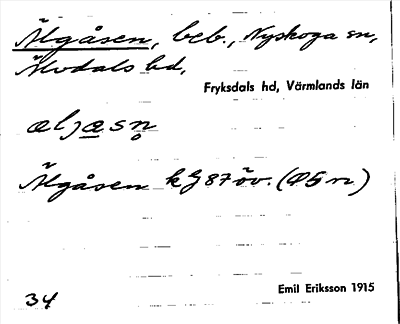 Älgåsen, beb., Nyskoga sn,
Älvdals hd,
Fryksdals hd, Värmlands län
æljasn̥
Älgåsen kJ 87 öv. (Ö5 n)
34
Emil Eriksson 1915